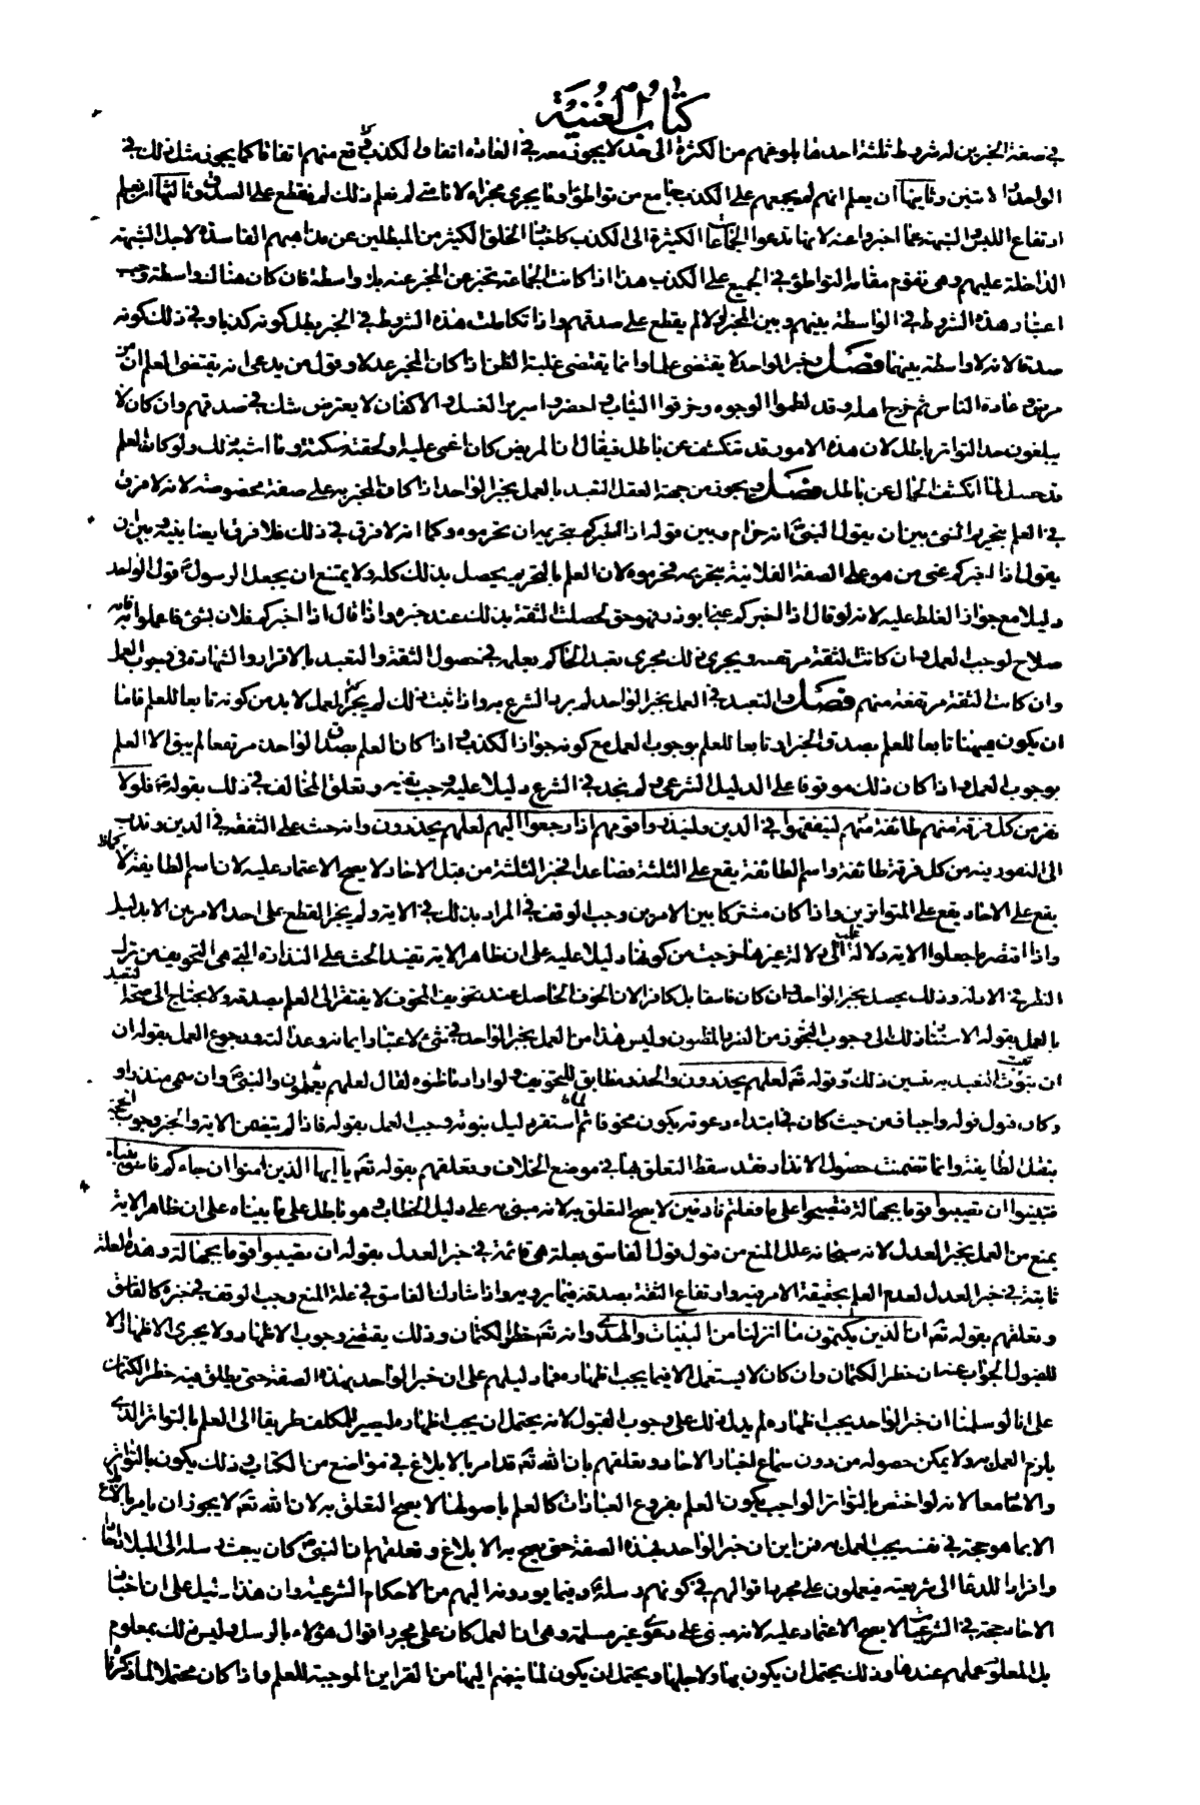 كتاب الغنية
في صفة المخبرين له شروط ثلثة احدها بلوغهم من الكثرة الى حد لا يجوز معه في العادة اتفاق الكذب في تقع منهم اتفاقا كما يجوز مثل ذلك في
الواحد والاثنين وثانيها ان يعلم انهم لم يجمعهم على الكذب جامع من تواطؤ او ما يجرى مجراه لانا متى لم نعلم ذلك لم نقطع على الصدق وثالثها ان نعلم
ارتفاع اللبس والشبهة عما اخبروا عنه لانها تدعوا الجماعات الكثيرة الى الكذب كاخبار الخلق الكثير من المبطلين عن مذاهبهم الفاسدة لاجل الشبهة
الداخلة عليهم وهى تقوم مقام التواطؤ في الجمع على الكذب هذا اذا كانت الجماعة تخبر عن المخبر عنه بلا واسطة فان كان هناك واسطة وجب
اعتبار هذه الشروط في الواسطة بينهم وبين المخبر لولا لم يقطع على صدقهم واذا تكاملت هذه الشروط في الخبر بطل كونه كذبا وفي ذلك كونه
صدقا لانه لا واسطة بينهما فصل خبر الواحد لا يقتضى علما وانما يقتضى غلبة الظن اذا كان المخبر عدلا وقول من يدعى انه يقتضى العلم ان من
مرض وعادة الناس ثم خرج اهله وقد لطموا الوجوه وخرقوا الثياب واحضروا سرير الغسل والاكفان لا يعترض شك في صدقهم وان كان لا
يبلغون حد التواتر باطل لان هذه الامور قد تنكشف عن باطل فيقال ان المريض كان اغمى عليه او لحقته سكتة وما اشبه ذلك ولو كان العلم
قد حصل لما انكشف الحال عن باطل فصل ويجوز من جهة العقل التعبد بالعمل بخبر الواحد اذا كان المخبر به على صفة مخصوصة لانه لا فرق
في العلم بتحريم الشئ بين ان يقول النبي انه حرام وبين قوله اذا اخبركم بتحريمه فحرموه وكما انه لا فرق في ذلك فلا فرق ايضا بينه وبين ان
يقول اذا اخبركم عنى من هو على الصفة الفلانية بتحريمه فحرموه لان العلم بالتحريم يحصل بذلك كله ولا يمتنع ان يجعل الرسول قول الواحد
دليلا مع جواز الغلط عليه لانه لو قال اذا اخبركم عنى ابو ذر فهو حق لحصلت الثقة بذلك عند خبره واذا قال اذا اخبركم فلان بشئ فاعملوا به فانه
صلاح لوجب العمل وان كانت الثقة مرتفعة ويجرى ذلك مجرى تعبد الحاكم بعلمه في حصول الثقة والتعبد بالاقرار والشهادة في وجوب العمل
وان كانت الثقة مرتفعة منهم فصل والتعبد في العمل بخبر الواحد لم يرد الشرع به واذا ثبت ذلك لم يجز العمل لا بد من كونه تابعا للعلم فاما
ان يكون ههنا تابعا للعلم بصدق الخبر او تابعا للعلم بوجوب العمل مع كونه جواز الكذب واذا كان العلم بصدق الواحد مرتفعا لم يبق الا العلم
بوجوب العمل واذا كان ذلك موقوفا على الدليل الشرعى ولم نجد في الشرع دليلا عليه وجب نفيه وتعلق المخالف في ذلك بقوله تع فلولا
نفر من كل فرقة منهم طائفة منهم ليتفقهوا في الدين ولينذروا قومهم اذا رجعوا اليهم لعلهم يحذرون وانه حث على التفقه في الدين وندب
الى النفور بنه من كل فرقة طائفة واسم الطائفة يقع على الثلثة فصاعدا لخبر الثلثة من قبل الاخاد لا يصح الاعتماد عليه لان اسم الطايفة كما
يقع على الاخاد يقع على المتواترين واذا كان مشتركا بين الامرين وجب الوقف في المراد بذلك في الاية ولم يجز القطع على احد الامرين الا بدليل
واذا افتقر ما جعلوا الاية دلالة الى دلالة غيرها خرجت من كونها دليلا عليه على ان ظاهر الاية يفيد الحث على النذارة التي هى التخويف من ترك
النظر في الادلة وذلك يحصل بخبر الواحد وان كان فاسقا بل كافرا لان الخوف الحاصل عند تخويف المخوف لا يفتقر الى العلم بصدقه ولا يحتاج الى صحة التعبد
بالعمل بقوله لاستناد ذلك الى وجوب التحرز من الضرر المظنون وليس هذا من العمل بخبر الواحد في شئ لاعتبار ايمانه وعدالته ورجوع العمل بقوله ان
ان يثبت التعبد به تعين ذلك وقوله تع لعلهم يحذرون والحذر مطابق للتخويف ولو اراد ما ظنوه لقال لعلهم يعملون والنبي وان سمى منذرا و
وكان قبول قوله واجبا فمن حيث كان في ابتداء دعوته يكون مخوفا ثم لما استقر دليل نبوته وجب العمل بقوله فاذا لم يتضمن الاية والخبر وجوب الحجة
بنقل الطايفة وانما تضمنت حصول الانذار فقد سقط التعلق بها في موضع الخلاف وتعلقهم بقوله تع يا ايها الذين امنوا ان جاءكم فاسق بنباء
فتبينوا ان تصيبوا قوما بجهالة فتصبحوا على ما فعلتم نادمين لا يصح التعلق به لانه مبنى على دليل الخطاب وهو باطل على ما بيناه على ان ظاهر الاية
يمنع من العمل بخبر العدل لانه سبحانه علل المنع من قبول قول الفاسق بعلة هى قائمة في خبر العدل بقوله ان تصيبوا قوما بجهالة وهذه العلة
ثابتة في خبر العدل لعدم العلم بحقيقة الامر فيه وارتفاع الثقة بصدقه فيما يرويه واذا شارك الفاسق في علة المنع وجب الوقف في خبره كالفاسق
وتعلقهم بقوله تع ان الذين يكتمون ما انزلنا من البينات والهدى وانه تع حظر الكتمان وذلك يقتضى وجوب الاظهار ولا يجرى الاظهار الا
للقبول الجواب عنه ان حظر الكتمان وان كان لا يستعمل الا فيما يجب اظهاره فما دليلهم على ان خبر الواحد بهذه الصفة حتى يطلق فيه حظر الكتمان
على انا لو سلمنا ان خبر الواحد يجب اظهاره لم يدل ذلك على وجوب القبول لانه يحتمل ان يجب اظهاره ليصير للمكلف طريقا الى العلم بالتواتر الذى
يلزم العمل به ولا يمكن حصوله من دون سماع اخبار الاخاد وتعلقهم بان الله تع قد امر بالابلاغ في مواضع من الكتاب وذلك يكون بالتواتر
والاخاد معا لانه لو اختص بالتواتر لواجب يكون العلم بفروع العبادات كالعلم باصولها لا يصح التعلق به لان الله تع لا يجوز ان يامر بالابلاغ
الا بما هو حجة في نفسه يجب العمل به فمن اين ان خبر الواحد بهذه الصفة حتى يصح به الابلاغ وتعلقهم ان النبي كان يبعث رسله الى البلاد احادا
وافرادا للدعا الى شريعته فيعملون على مجرد اقوالهم في كونهم رسله وفيما يوردونه اليهم من الاحكام الشرعية وان هذا دليل على ان اخبار
الاخاد حجة في الشرعيات لا يصح الاعتماد عليه لانه مبنى على دعوى غير مسلمة وهى ان العمل كان على مجرد اقوال هؤلاء بالرسل وليس ذلك بمعلوم
بل المعلوم عملهم عندها وذلك يحتمل ان يكون بها ولاجلها ويحتمل ان يكون لما ينهم اليها من القراين الموجبة للعلم واذا كان محتملا لما ذكرناه